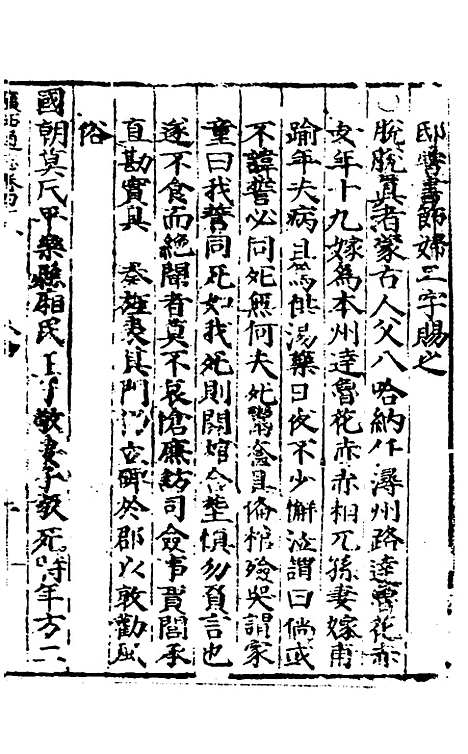 邸書師婦三字賜之
脫脫真者蒙古人父八哈納任潯州路達魯花赤
女年十九嫁為本州達魯花赤赤相兀孫妻嫁甫
踰年夫病且馬供湯藥日夜不少懈泣謂曰倘或
不諱誓必同死無何夫死鬻奩具俻棺殮哭謂家
童曰我誓同死如我死則開棺合塟慎勿負言也
遂不食而絕聞者莫不哀愴廉訪司僉事賈閭承
直勘實具奏旌表其門仍立碑於郡以敦勸風
俗
國朝莫氏甲樂縣廂民王子敬妻子敬死時年方二